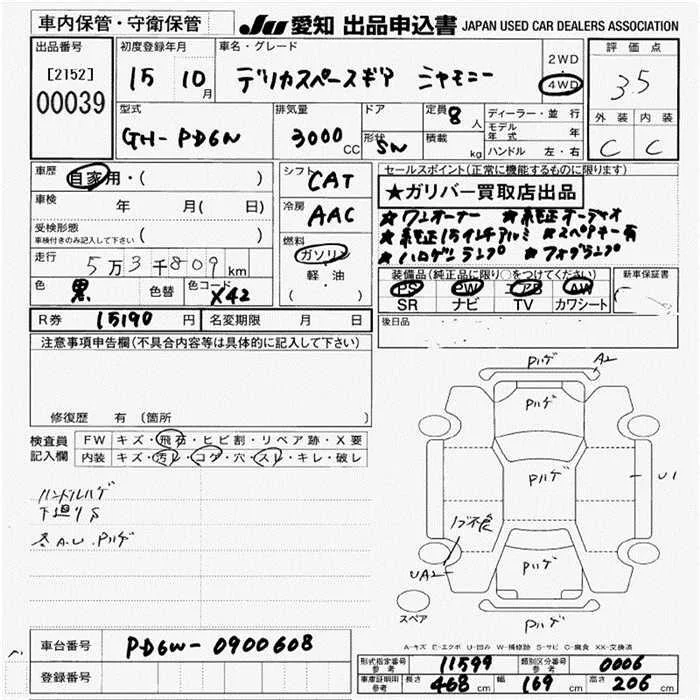 車内保管・守衛保管
JU 愛知 出品申込書 JAPAN USED CAR DEALERS ASSOCIATION
出品番号
[2152]
00039
初度登録年月
15 10月
車名・グレード
デリカスペースギア シャモニー
2WD
・
4WD
評価点
3.5
外装 内装
C C
型式
GH-PD6W
排気量
3000 CC
ドア
形状 SW
定員 8 人
積載 kg
ディーラー・並行
モデル年式 年
ハンドル 左・右
車歴 自家用・( )
車検 年 月( 日)
受検形態
車検付きのみ記入して下さい ( )
走行 5万3千809 km
色 黒 色替 色コード X42
シフト CAT
冷房 AAC
燃料
ガソリン
軽・油
( )
セールスポイント(正常に機能するものに限ります)
★ガリバー買取店出品
★ワンオーナー ★純正オーディオ
★純正15インチアルミ ★スペアキー有
★ハロゲンランプ ★フォグランプ
装備品(純正品に限り○をつけてください)
PS PW エアB AW
SR ナビ TV カワシート
新車保証書
後日品
R券 15190 円 名変期限 月 日
注意事項申告欄(不具合内容等は具体的に記入して下さい)
修復歴 有 (箇所
検査員記入欄
FW キズ・飛石・ヒビ割・リペア跡・X要
内装 キズ・汚レ・コゲ・穴・スレ・キレ・破レ
ハンドルハゲ
下廻りS
各A.U.Pハゲ
Pハゲ A2
Pハゲ
Pハゲ
U1
UA2
Pハゲ
Pハゲ
スペア
A-キズ E-エクボ U-凹み W-補修跡 S-サビ C-腐食 XX-交換済
車台番号 PD6W-0900608
登録番号
形式指定番号 参考 11599 類別区分番号 参考 0006
車庫証明用 参考 長さ 468 cm 幅 169 cm 高さ 206 cm